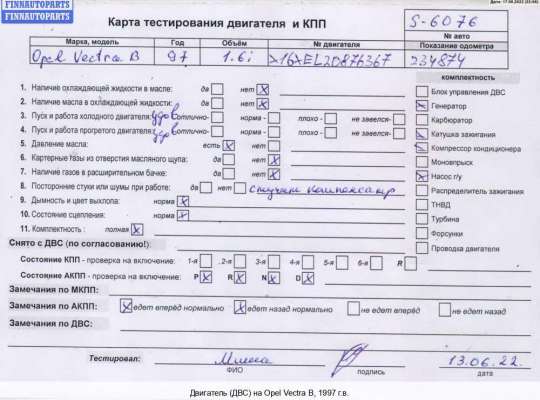 FINNAUTOPARTS
FINNAUTOPARTS
Дата: 17.06.2022
Карта тестирования двигателя и КПП
S-6076
№ авто
Марка, модель Год Объём № двигателя Показание одометра
Opel Vectra B 97 1.6i X16XEL20876367 234874
комплектность
1. Наличие охлаждающей жидкости в масле: да нет Х
2. Наличие масла в охлаждающей жидкости: да нет Х
3. Пуск и работа холодного двигателя: удов Отлично- норма - плохо - не завелся-
4. Пуск и работа прогретого двигателя: удов Отлично- норма - плохо - не завелся-
5. Давление масла: есть Х нет
6. Картерные газы из отверстия масляного щупа: да нет Х
7. Наличие газов в расширительном бачке: да нет Х
8. Посторонние стуки или шумы при работе: да нет стучит
9. Дымность и цвет выхлопа: норма Х
10. Состояние сцепления: норма Х
11. Комплектность : полная Х
Блок управления ДВС
Х Генератор
Карбюратор
Катушка зажигания
Компрессор кондиционера
Моновпрыск
Х Насос г/у
Распределитель зажигания
ТНВД
Турбина
Форсунки
Проводка двигателя
Снято с ДВС (по согласованию!):
Состояние КПП - проверка на включение: 1-я 2-я 3-я 4-я 5-я 6-я R
Состояние АКПП - проверка на включение: P Х R Х N Х D Х
Замечания по МКПП:
Замечания по АКПП: Х едет вперёд нормально Х едет назад нормально не едет вперёд не едет назад
Замечания по ДВС:
Тестировал: 13.06.22.
ФИО подпись дата
Двигатель (ДВС) на Opel Vectra B, 1997 г.в.